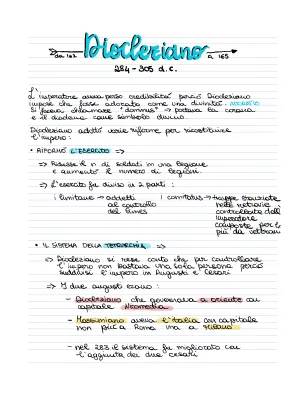 da 162 Diocleziano a 165
284 - 305 d.C.
L'imperatore aveva perso credibilità perciò Diocleziano
impose che fosse adorato come una divinità.
Si faceva chiamare "dominus" → portava la corona
e il diadema come simbolo divino.
Diocleziano adottò varie riforme per ricostituire
l'impero:
• RIFORMÒ L'ESERCITO =>
=> Ridusse il n. di soldati in una legione
e aumentò il numero di legioni.
=> L'esercito fu diviso in 2 parti:
i limitanei → addetti
al controllo
del limes
i comitatus → truppe stanziate
nelle retrovie
controllate dall'
imperatore
composte per lo
più da veterani
• IL SISTEMA DELLA TETRARCHIA =>
=> Diocleziano si rese conto che per controllare
l'impero non bastava una sola persona perciò
suddivise l'impero in Augusti e Cesari
=> I due augusti erano:
- Diocleziano che governava a oriente con
capitale Nicomedia
- Massimiano aveva l'Italia con capitale
non più a Roma ma a Milano
- nel 283 il sistema fu migliorato con
l'aggiunta dei due cesari